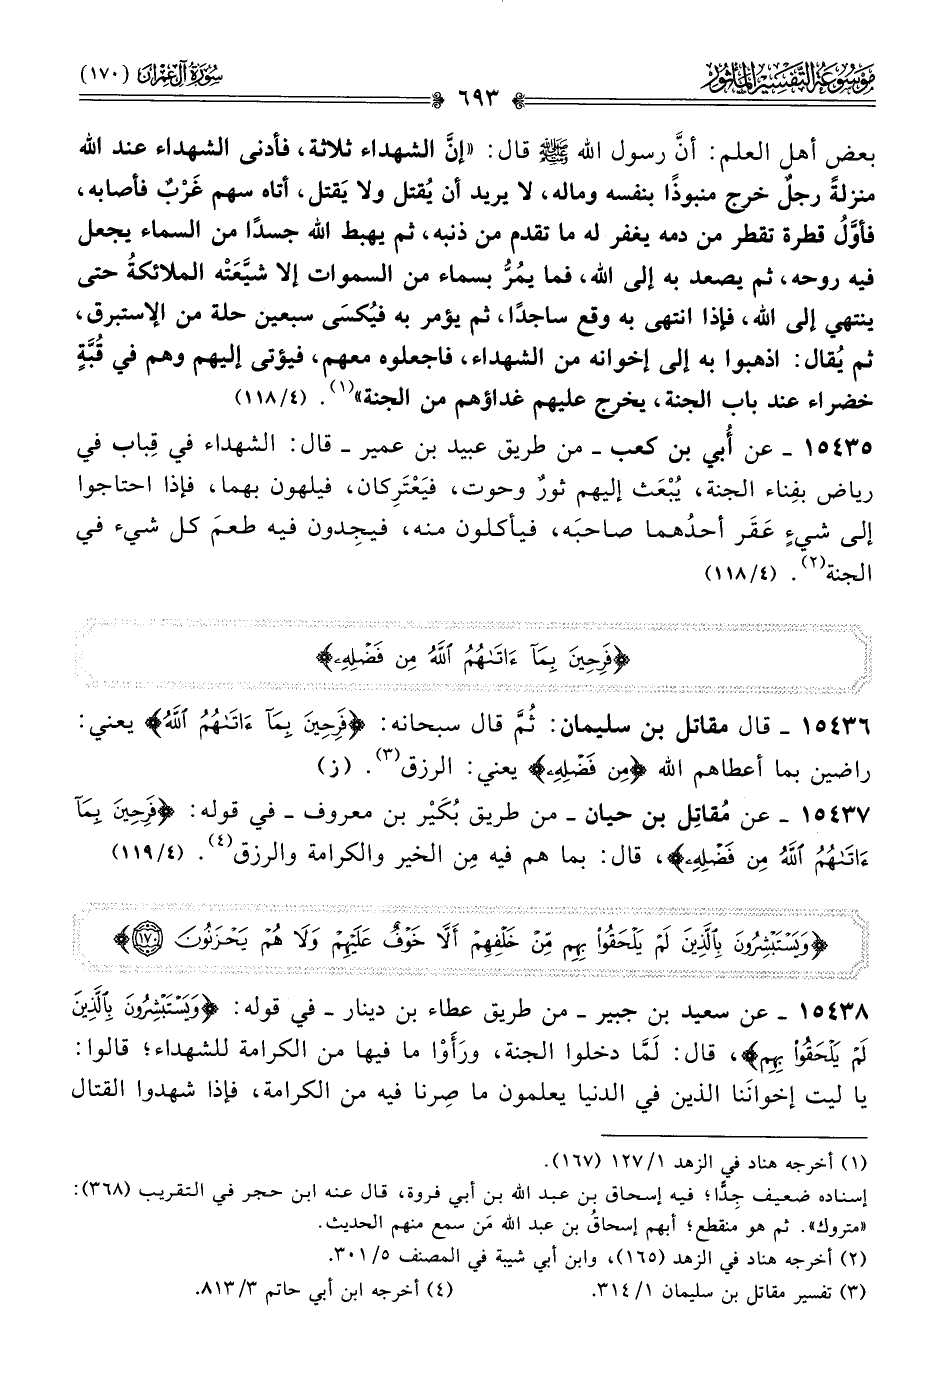 موسوعة التفسير المأثور
٦٩٣
سورة آل عمران (١٧٠)
بعض أهل العلم: أنَّ رسول الله ﷺ قال: «إنَّ الشهداء ثلاثة، فأدنى الشهداء عند الله
منزلةً رجلٌ خرج منبوذًا بنفسه وماله، لا يريد أن يُقتل ولا يَقتل، أتاه سهم غَرْبٌ فأصابه،
فأوَّلُ قطرة تقطر من دمه يغفر له ما تقدم من ذنبه، ثم يهبط الله جسدًا من السماء يجعل
فيه روحه، ثم يصعد به إلى الله، فما يمُرُّ بسماء من السموات إلا شيَّعَتْه الملائكةُ حتى
ينتهي إلى الله، فإذا انتهى به وقع ساجدًا، ثم يؤمر به فيُكسَى سبعين حلة من الإستبرق،
ثم يُقال: اذهبوا به إلى إخوانه من الشهداء، فاجعلوه معهم، فيؤتى إليهم وهم في قُبَّةٍ
خضراء عند باب الجنة، يخرج عليهم غداؤهم من الجنة»(١). (١١٨/٤)
١٥٤٣٥ ـ عن أُبي بن كعب ـ من طريق عبيد بن عمير ـ قال: الشهداء في قِباب في
رياض بفِناء الجنة، يُبْعَث إليهم ثورٌ وحوت، فيَعْتَرِكان، فيلهون بهما، فإذا احتاجوا
إلى شيءٍ عَقَر أحدُهما صاحبَه، فيأكلون منه، فيجِدون فيه طعمَ كل شيء في
الجنة(٢). (١١٨/٤)
﴿فَرِحِينَ بِمَآ ءَاتَىٰهُمُ ٱللَّهُ مِن فَضْلِهِۦ﴾
١٥٤٣٦ ـ قال مقاتل بن سليمان: ثُمَّ قال سبحانه: ﴿فَرِحِينَ بِمَآ ءَاتَىٰهُمُ ٱللَّهُ﴾ يعني:
راضين بما أعطاهم الله ﴿مِن فَضْلِهِۦ﴾ يعني: الرزق(٣). (ز)
١٥٤٣٧ ـ عن مُقاتِل بن حيان ـ من طريق بُكَيْر بن معروف ـ في قوله: ﴿فَرِحِينَ بِمَآ
ءَاتَىٰهُمُ ٱللَّهُ مِن فَضْلِهِۦ﴾، قال: بما هم فيه مِن الخير والكرامة والرزق(٤). (١١٩/٤)
﴿وَيَسْتَبْشِرُونَ بِٱلَّذِينَ لَمْ يَلْحَقُوا۟ بِهِم مِّنْ خَلْفِهِمْ أَلَّا خَوْفٌ عَلَيْهِمْ وَلَا هُمْ يَحْزَنُونَ ١٧٠﴾
١٥٤٣٨ ـ عن سعيد بن جبير ـ من طريق عطاء بن دينار ـ في قوله: ﴿وَيَسْتَبْشِرُونَ بِٱلَّذِينَ
لَمْ يَلْحَقُوا۟ بِهِم﴾، قال: لَمَّا دخلوا الجنة، ورَأَوْا ما فيها من الكرامة للشهداء؛ قالوا:
يا ليت إخوانَنا الذين في الدنيا يعلمون ما صِرنا فيه من الكرامة، فإذا شهدوا القتال
(١) أخرجه هناد في الزهد ١٢٧/١ (١٦٧).
إسناده ضعيف جِدًّا؛ فيه إسحاق بن عبد الله بن أبي فروة، قال عنه ابن حجر في التقريب (٣٦٨):
«متروك». ثم هو منقطع؛ أبهم إسحاقُ بن عبد الله مَن سمع منهم الحديث.
(٢) أخرجه هناد في الزهد (١٦٥)، وابن أبي شيبة في المصنف ٣٠١/٥.
(٣) تفسير مقاتل بن سليمان ٣١٤/١. (٤) أخرجه ابن أبي حاتم ٨١٣/٣.